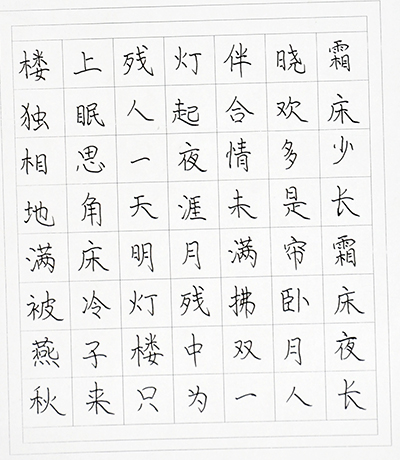 楼上残灯伴晓霜
独眠人起合欢床
相思一夜情多少
地角天涯未是长
满床明月满帘霜
被冷灯残拂卧床
燕子楼中双月夜
秋来只为一人长